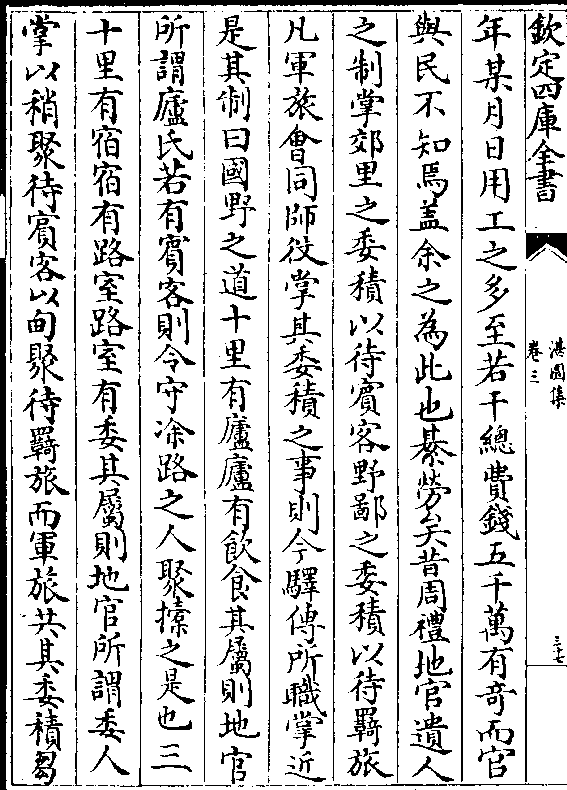 欽定四庫全書
湛園集
卷三
三十七
年某月日用工之多至若干總費錢五千萬有奇而官
與民不知焉蓋余之為此也綦勞矣昔周禮地官遺人
之制掌郊里之委積以待賓客野鄙之委積以待羇旅
凡軍旅會同師役掌其委積之事則今驛傳所職掌近
是其制曰國野之道十里有廬廬有飲食其屬則地官
所謂廬氏若有賓客則令守涂路之人聚㯱之是也三
十里有宿宿有路室路室有委其屬則地官所謂委人
掌以稍聚待賓客以甸聚待羇旅而軍旅共其委積芻